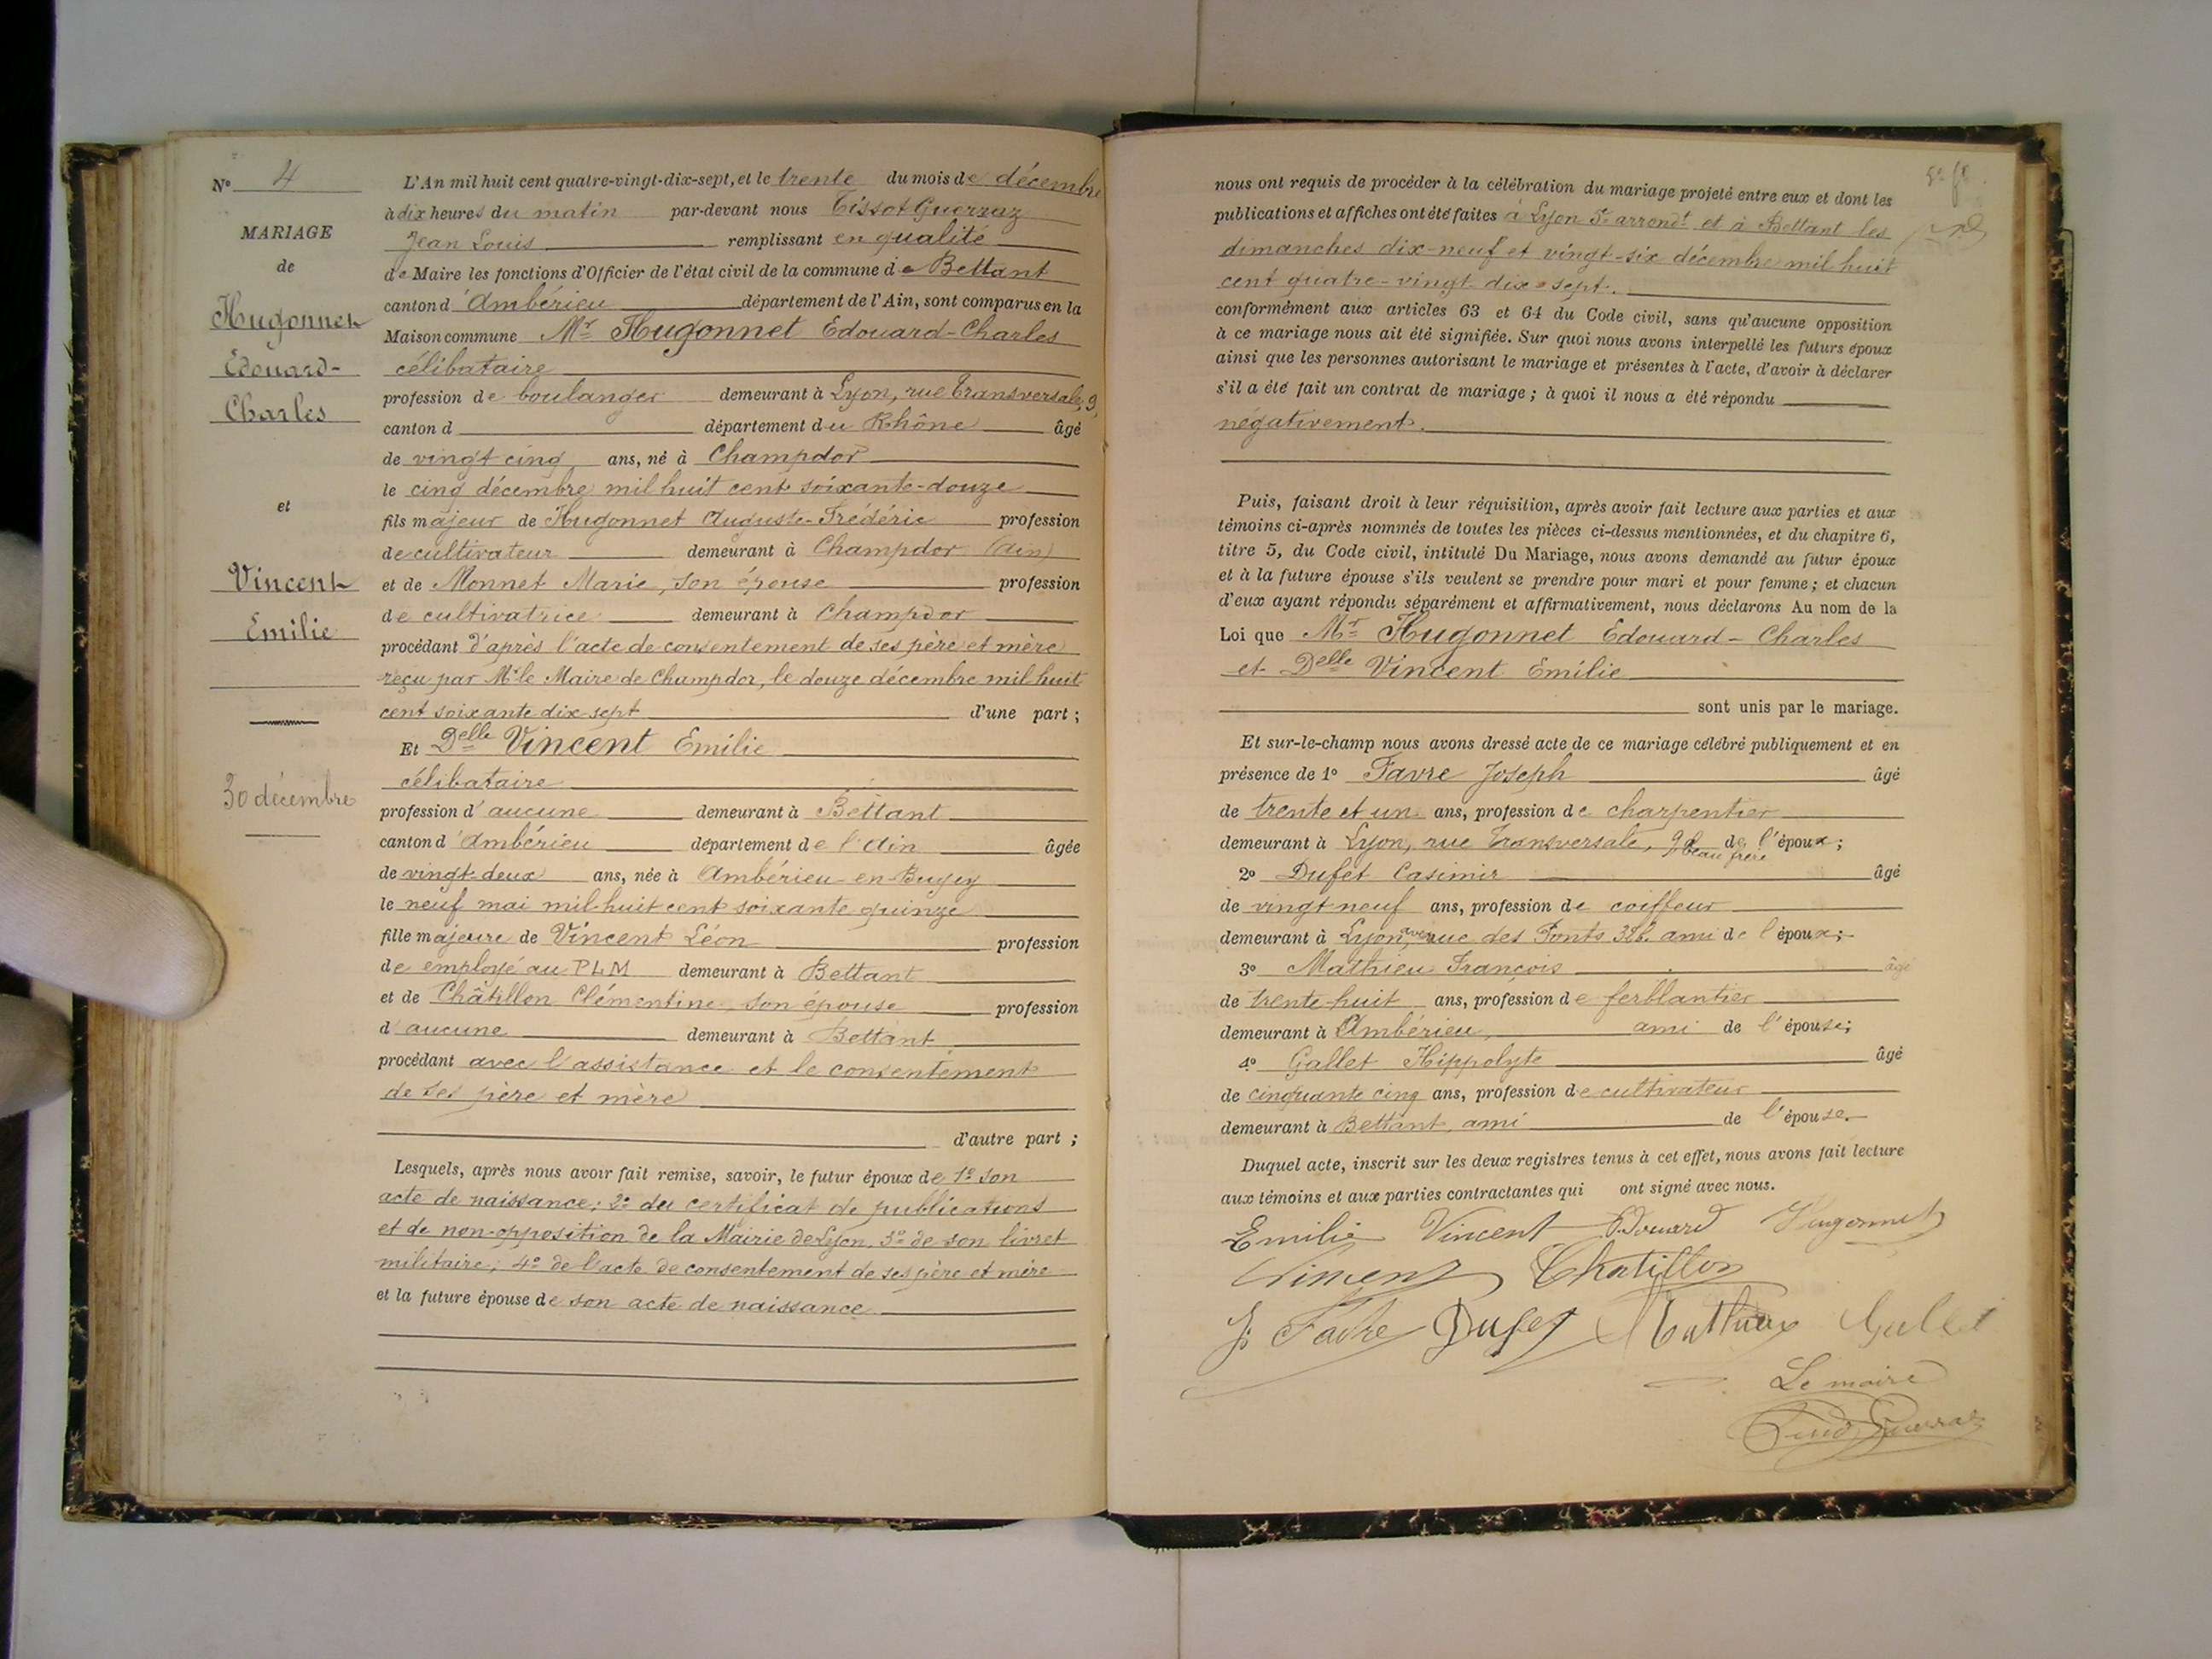 N° 4
MARIAGE
de
Hugonnet
Édouard-
Charles
et
Vincent
Emilie
30 décembre
L'An mil huit cent quatre-vingt-dix-sept, et le trente du mois de décembre
à dix heures du matin par-devant nous Tissot Guerraz
Jean Louis remplissant en qualité
de Maire les fonctions d'Officier de l'état civil de la commune de Bettant
canton d'Ambérieu département de l'Ain, sont comparus en la
Maison commune Mr Hugonnet Edouard-Charles
célibataire
profession de boulanger demeurant à Lyon, rue Transversale, 9
canton d département du Rhône âgé
de vingt cinq ans, né à Champdor
le cinq décembre mil huit cent soixante-douze
fils majeur de Hugonnet Auguste-Frédéric profession
de cultivateur demeurant à Champdor (Ain)
et de Monnet Marie, son épouse profession
de cultivatrice demeurant à Champdor
procédant d'après l'acte de consentement de ses père et mère
reçu par Mr le Maire de Champdor, le douze décembre mil huit
cent soixante dix-sept d'une part ;
Et Delle Vincent Emilie
célibataire
profession d'aucune demeurant à Bettant
canton d'Ambérieu département de l'Ain âgée
de vingt-deux ans, née à Ambérieu-en-Bugey
le neuf mai mil-huit cent soixante quinze
fille majeure de Vincent Léon profession
de employé au PLM demeurant à Bettant
et de Châtillon Clémentine, son épouse profession
d'aucune demeurant à Bettant
procédant avec l'assistance et le consentement
de ses père et mère
d'autre part ;
Lesquels, après nous avoir fait remise, savoir, le futur époux de 1° son
acte de naissance; 2° du certificat de publications
et de non-opposition de la Mairie de Lyon, 3° de son livret
militaire; 4° de l'acte de consentement de ses père et mère
et la future épouse de son acte de naissance
nous ont requis de procéder à la célébration du mariage projeté entre eux et dont les
publications et affiches ont été faites à Lyon 5e arrondt et à Bettant les
dimanches dix-neuf et vingt-six décembre mil huit
cent quatre-vingt dix-sept.
conformément aux articles 63 et 64 du Code civil, sans qu'aucune opposition
à ce mariage nous ait été signifiée. Sur quoi nous avons interpellé les futurs époux
ainsi que les personnes autorisant le mariage et présentes à l'acte, d'avoir à déclarer
s'il a été fait un contrat de mariage ; à quoi il nous a été répondu
négativement.
Puis, faisant droit à leur réquisition, après avoir fait lecture aux parties et aux
témoins ci-après nommés de toutes les pièces ci-dessus mentionnées, et du chapitre 6,
titre 5, du Code civil, intitulé Du Mariage, nous avons demandé au futur époux
et à la future épouse s'ils veulent se prendre pour mari et pour femme ; et chacun
d'eux ayant répondu séparément et affirmativement, nous déclarons Au nom de la
Loi que Mr Hugonnet Edouard-Charles
et Delle Vincent Emilie
sont unis par le mariage.
Et sur-le-champ nous avons dressé acte de ce mariage célébré publiquement et en
présence de 1° Favre Joseph âgé
de trente et un ans, profession de charpentier
demeurant à Lyon, rue Transversale, 9 beau frère de l'époux ;
2° Dufet Casimir âgé
de vingt neuf ans, profession de coiffeur
demeurant à Lyon, avenue des Ponts 32b. ami de l'époux ;
3° Mathieu François âgé
de trente-huit ans, profession de ferblantier
demeurant à Ambérieu, ami de l'épouse;
4° Gallet Hippolyte âgé
de cinquante cinq ans, profession de cultivateur
demeurant à Bettant, ami de l'épouse.
Duquel acte, inscrit sur les deux registres tenus à cet effet, nous avons fait lecture
aux témoins et aux parties contractantes qui ont signé avec nous.
Emilie Vincent Edouard Hugonnet
Vincent Chatillon
J. Favre Dufet Mathieu Galet
Le maire